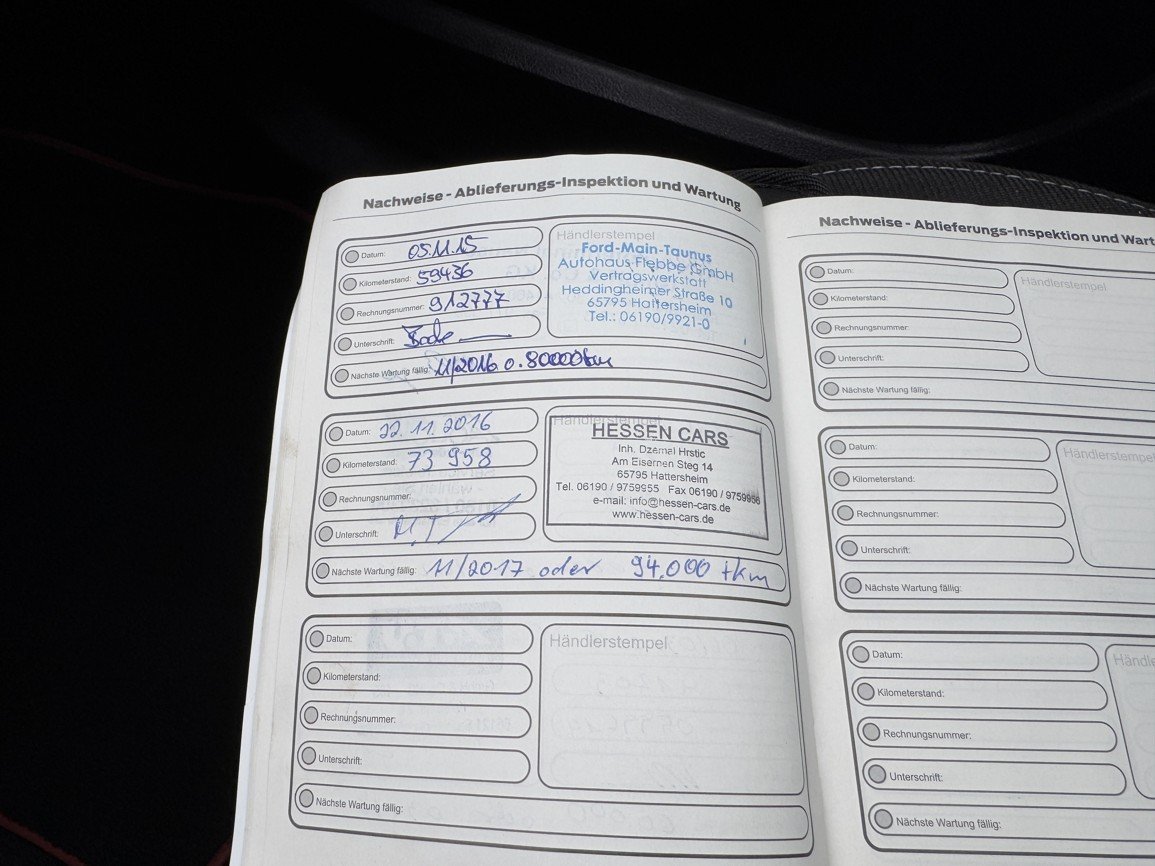 Nachweise - Ablieferungs-Inspektion und Wartung
Datum: 05.11.15
Kilometerstand: 59436
Rechnungsnummer: 912777
Unterschrift: Bode
Nächste Wartung fällig: 11/2016 o. 80000 km
Händlerstempel
Ford-Main-Taunus
Autohaus Flebbe GmbH
Vertragswerkstatt
Heddingheimer Straße 10
65795 Hattersheim
Tel.: 06190/9921-0
Datum: 22.11.2016
Kilometerstand: 73 958
Rechnungsnummer:
Unterschrift:
Nächste Wartung fällig: 11/2017 oder 94.000 tkm
Händlerstempel
HESSEN CARS
Inh. Dzemal Hrstic
Am Eisernen Steg 14
65795 Hattersheim
Tel. 06190 / 9759955 Fax 06190 / 9759956
e-mail: info@hessen-cars.de
www.hessen-cars.de
Datum:
Kilometerstand:
Rechnungsnummer:
Unterschrift:
Nächste Wartung fällig:
Händlerstempel
Nachweise - Ablieferungs-Inspektion und Wart
Datum:
Kilometerstand:
Rechnungsnummer:
Unterschrift:
Nächste Wartung fällig:
Händlerstempel
Datum:
Kilometerstand:
Rechnungsnummer:
Unterschrift:
Nächste Wartung fällig:
Händlerstempel
Datum:
Kilometerstand:
Rechnungsnummer:
Unterschrift:
Nächste Wartung fällig:
Händle